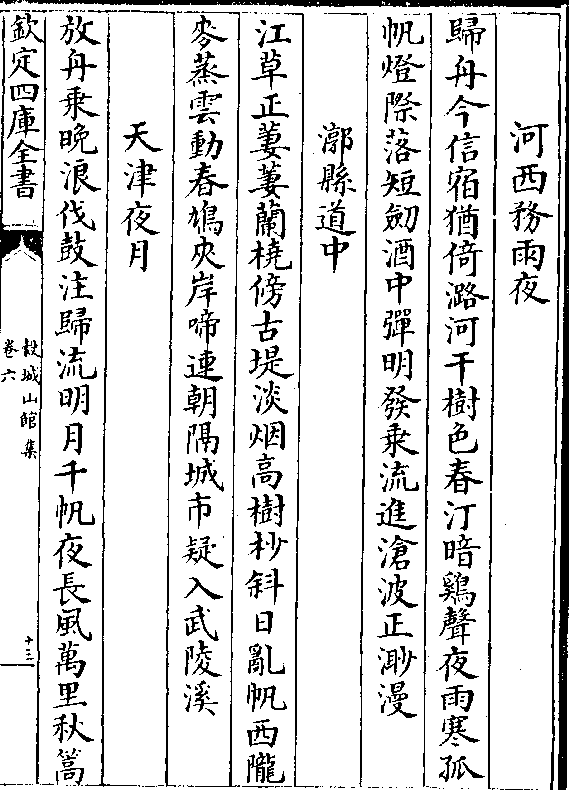 河西務雨夜
歸舟今信宿猶倚潞河干樹色春汀暗鷄聲夜雨寒孤
帆燈際落短劒酒中彈明發乗流進滄波正渺漫
漷縣道中
江草正萋萋蘭橈傍古堤淡烟髙樹杪斜日亂帆西隴
麥蒸雲動春鳩夾岸啼連朝隔城市疑入武陵溪
天津夜月
放舟乗晩浪伐鼓注歸流明月千帆夜長風萬里秋篙
欽定四庫全書
榖城山館集
卷六
十三